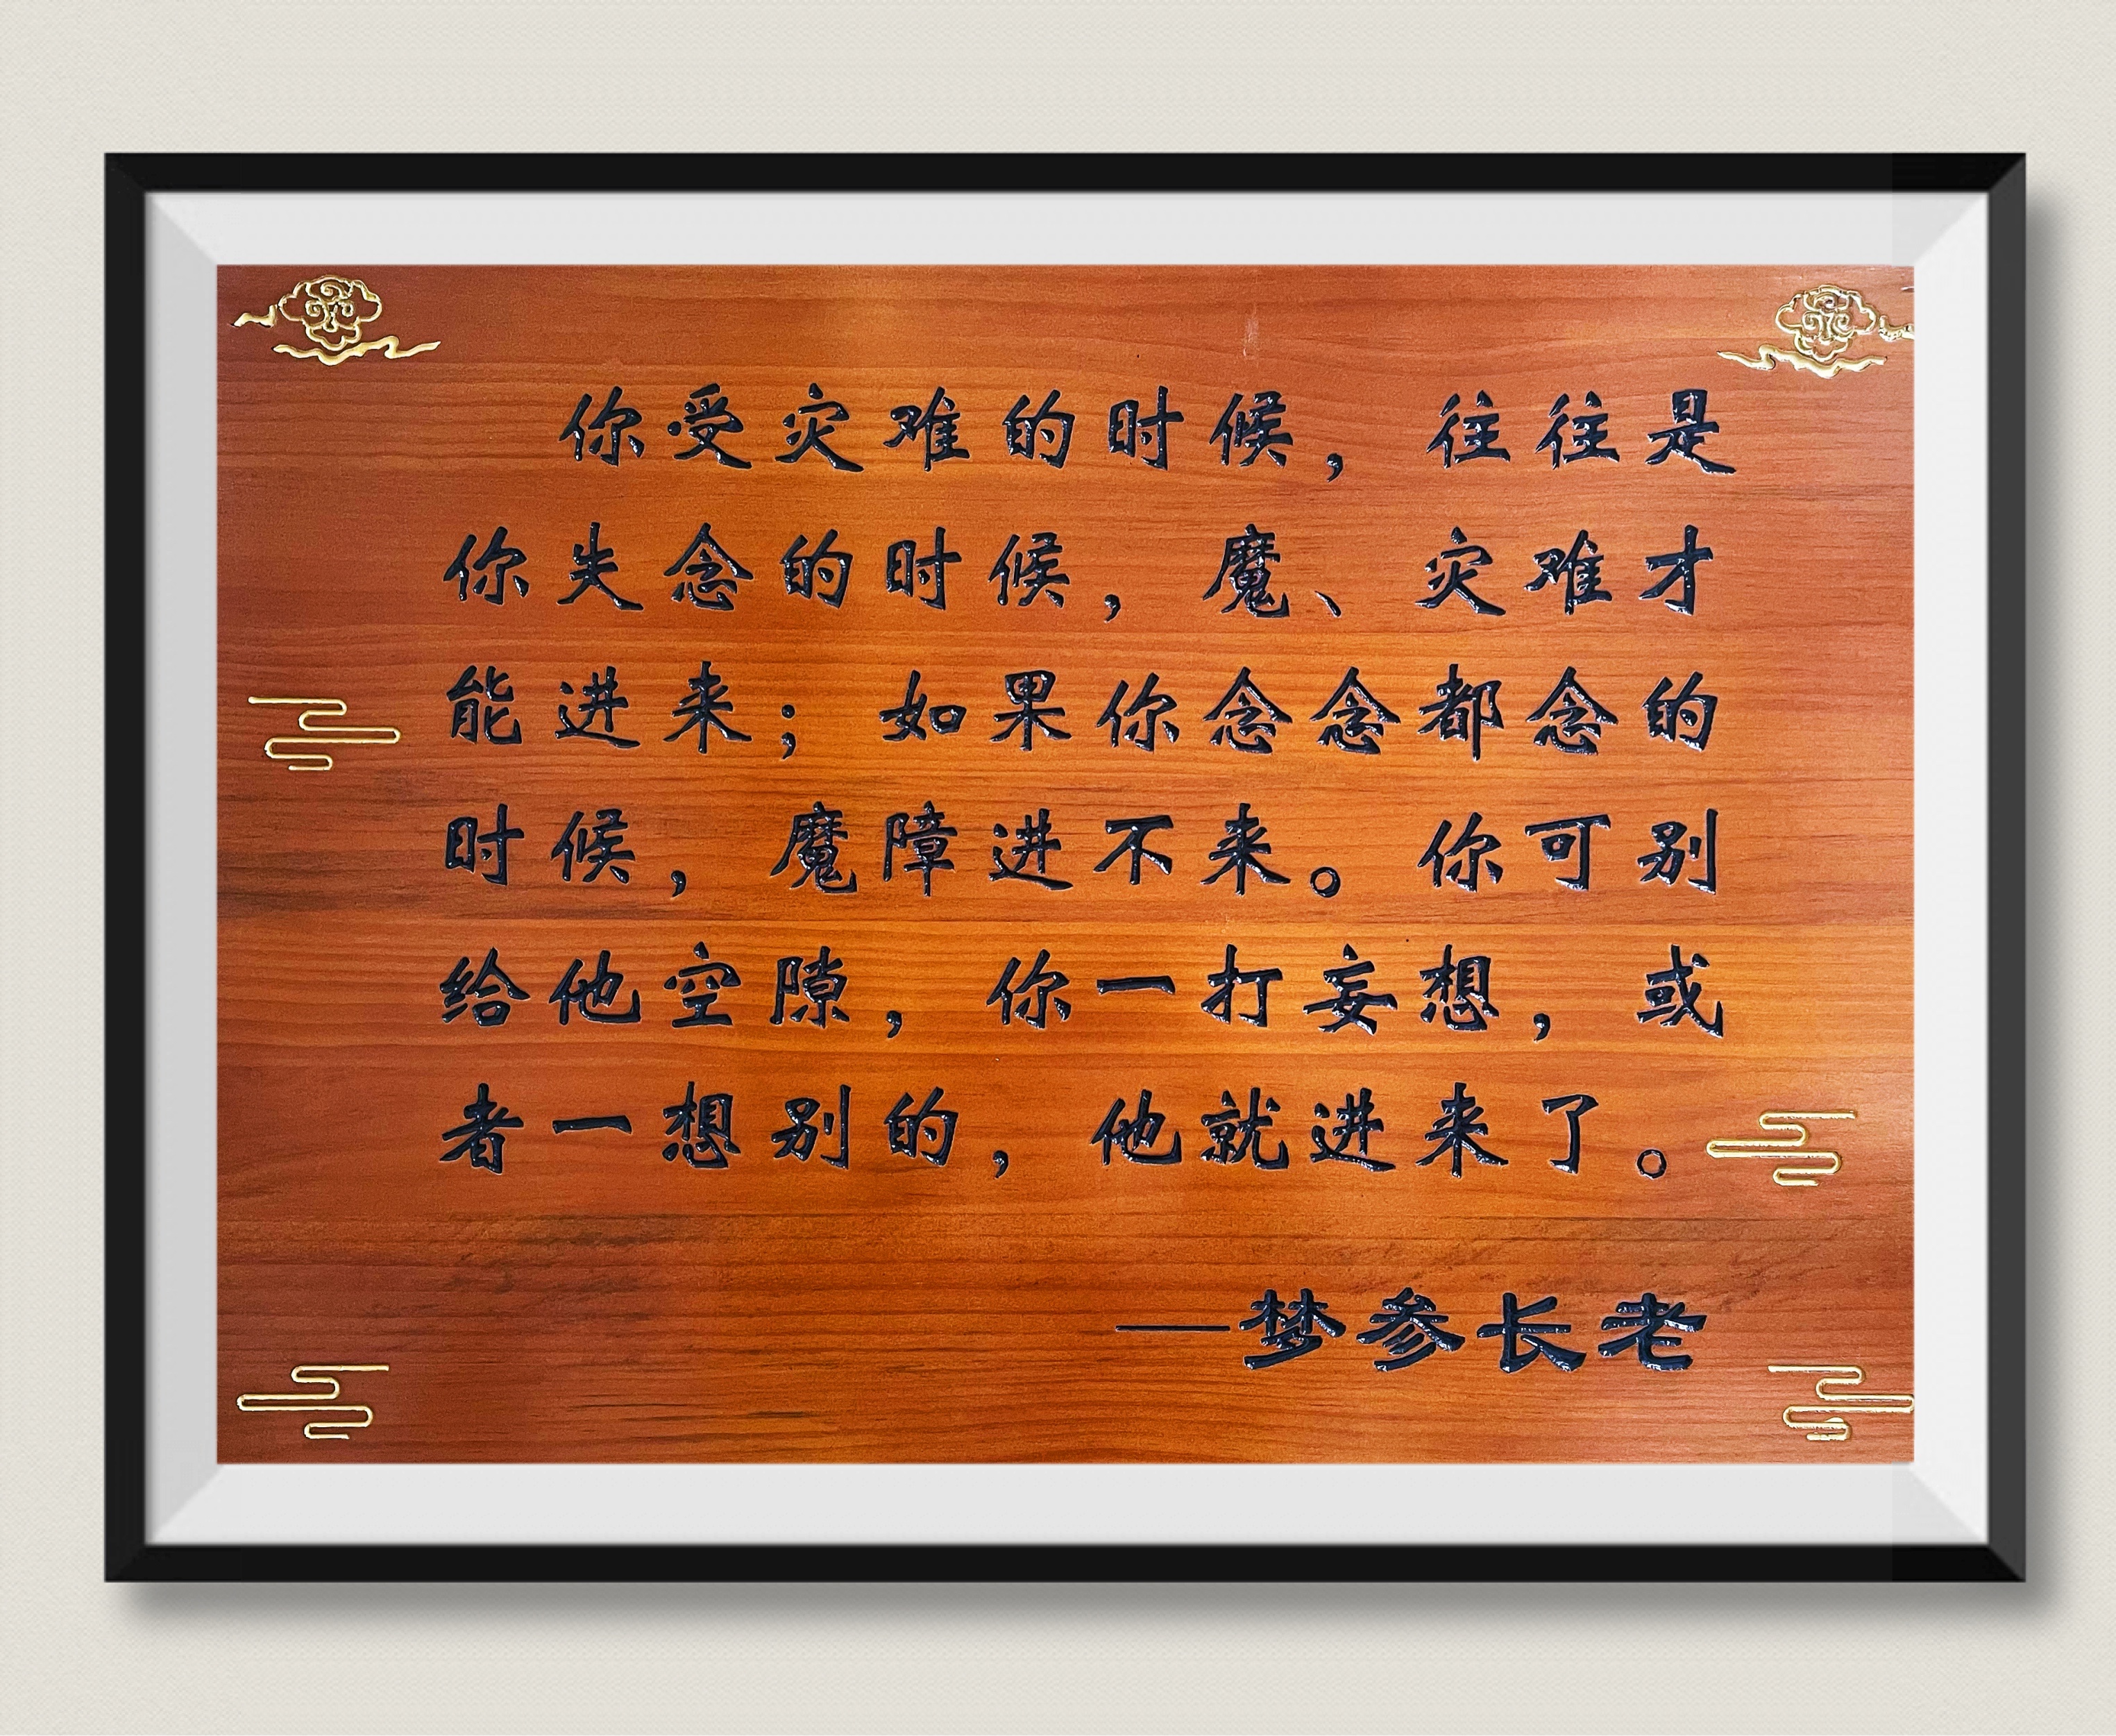 你受灾难的时候，往往是
你失念的时候，魔、灾难才
能进来；如果你念念都念的
时候，魔障进不来。你可别
给他空隙，你一打妄想，或
者一想别的，他就进来了。
—梦参长老